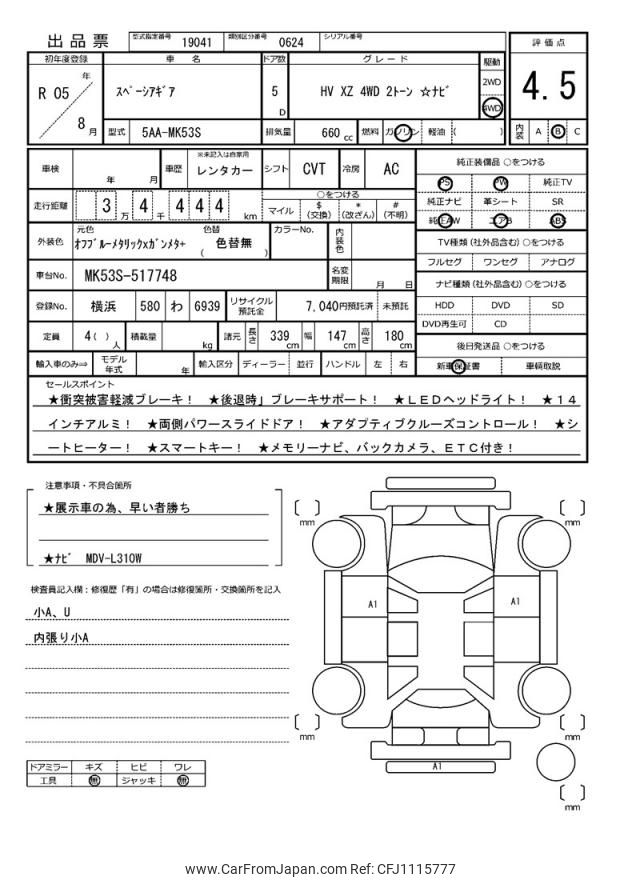 出品票 型式指定番号 19041 類別区分番号 0624 シリアル番号
評価点
4.5
内装 A B C
初年度登録 車名 ドア数 グレード 駆動
R 05 年 8 月
スペーシアギア 5 D HV XZ 4WD 2トーン ☆ナビ 2WD 4WD
型式 5AA-MK53S 排気量 660 cc 燃料 ガソリン 軽油 ( )
車検 年 月 車歴 ※未記入は自家用 レンタカー シフト CVT 冷房 AC
走行距離 3 万 4 千 4 4 4 km ○をつける
マイル $ (交換) * (改ざん) # (不明)
外装色 元色 オフブルーメタリックxガンメタ+ 色替 色替無 ( ) カラーNo. 内装色
車台No. MK53S-517748 名変期限 月 日
登録No. 横浜 580 わ 6939 リサイクル預託金 7,040円預託済 未預託
定員 4( ) 人 積載量 kg 諸元 長さ 339 cm 幅 147 cm 高さ 180 cm
輸入車のみ⇒ モデル年式 年 輸入区分 ディーラー 並行 ハンドル 左 右
純正装備品 ○をつける
PS PW 純正TV
純正ナビ 革シート SR
純正AW エアB ABS
TV種類 (社外品含む) ○をつける
フルセグ ワンセグ アナログ
ナビ種類 (社外品含む) ○をつける
HDD DVD SD
DVD再生可 CD
後日発送品 ○をつける
新車保証書 車輌取説
セールスポイント
★衝突被害軽減ブレーキ! ★後退時」ブレーキサポート! ★LEDヘッドライト! ★14
インチアルミ! ★両側パワースライドドア! ★アダプティブクルーズコントロール! ★シ
ートヒーター! ★スマートキー! ★メモリーナビ、バックカメラ、ETC付き!
注意事項・不具合箇所
★展示車の為、早い者勝ち
★ナビ MDV-L310W
検査員記入欄:修復歴「有」の場合は修復箇所・交換箇所を記入
小A、U
内張り小A
ドアミラー キズ ヒビ ワレ
工具 無 ジャッキ 無
mm
mm
A1
A1
mm
mm
A1
mm
www.CarFromJapan.com Ref: CFJ1115777